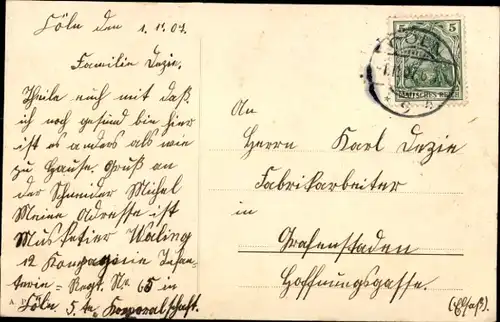 Cöln den 1.11.07.
Familie Dezie.
Theile euch mit daß
ich noch gesund bin hier
ist es anders als wie
zu Hause. Gruß an
der Schneider Michel
Meine Adresse ist
Musketier Wailing
12 Kompagnie Infan-
terie-Regt. No 65 in
Cöln 5. te Korporalschaft.
CÖLN
5 5
DEUTSCHES REICH
An
Herrn Karl Dezie
Fabrikarbeiter
in
Grafenstaden
Hoffnungsgasse.
(Elsaß).